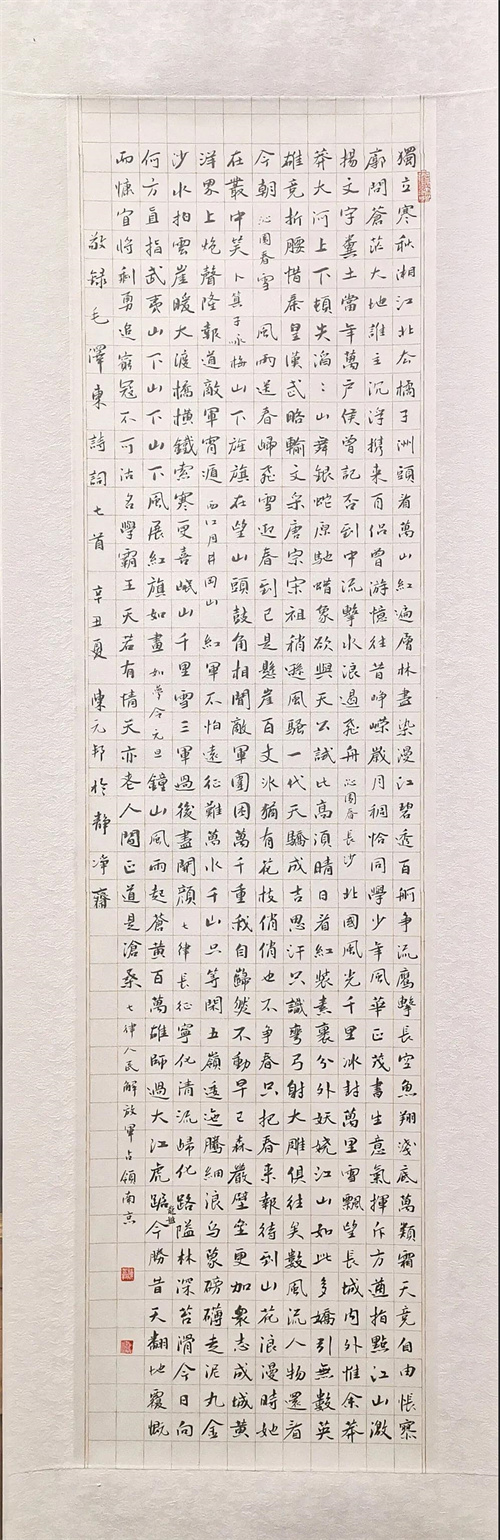 獨立寒秋湘江北去橘子洲頭看萬山紅遍層林盡染漫江碧透百舸爭流鷹擊長空魚翔淺底萬類霜天競自由悵寥
廓問蒼茫大地誰主沉浮攜來百侶曾游憶往昔崢嶸歲月稠恰同學少年風華正茂書生意氣揮斥方遒指點江山激
揚文字糞土當年萬戶侯曾記否到中流擊水浪遏飛舟 沁園春長沙 北國風光千里冰封萬里雪飄望長城內外惟余莽
莽大河上下頓失滔〻山舞銀蛇原馳蠟象欲與天公試比高須晴日看紅裝素裹分外妖嬈江山如此多嬌引無數英
雄競折腰惜秦皇漢武略輸文采唐宗宋祖稍遜風騷一代天驕成吉思汗只識彎弓射大雕俱往矣數風流人物還看
今朝 沁園春雪 風雨送春歸飛雪迎春到已是懸崖百丈冰猶有花枝俏俏也不爭春只把春來報待到山花浪漫時她
在叢中笑 卜算子咏梅 山下旌旗在望山頭鼓角相聞敵軍圍困萬千重我自巋然不動早已森嚴壁壘更加衆志成城黃
洋界上炮聲隆報道敵軍宵遁 西江月井岡山 紅軍不怕遠征難萬水千山只等閑五嶺逶迤騰細浪烏蒙磅礴走泥丸金
沙水拍雲崖暖大渡橋橫鐵索寒更喜岷山千里雪三軍過後盡開顏 七律長征 寧化清流歸化路隘林深苔滑今日向
何方直指武夷山下山下山下風展紅旗如畫 如夢令元旦 鐘山風雨起蒼黃百萬雄師過大江虎踞龍盤今勝昔天翻地覆慨
而慷宜將剩勇追窮寇不可沽名學霸王天若有情天亦老人間正道是滄桑 七律人民解放軍占領南京
敬錄毛澤東詩詞七首 辛丑夏 陳元邦於靜淨齋